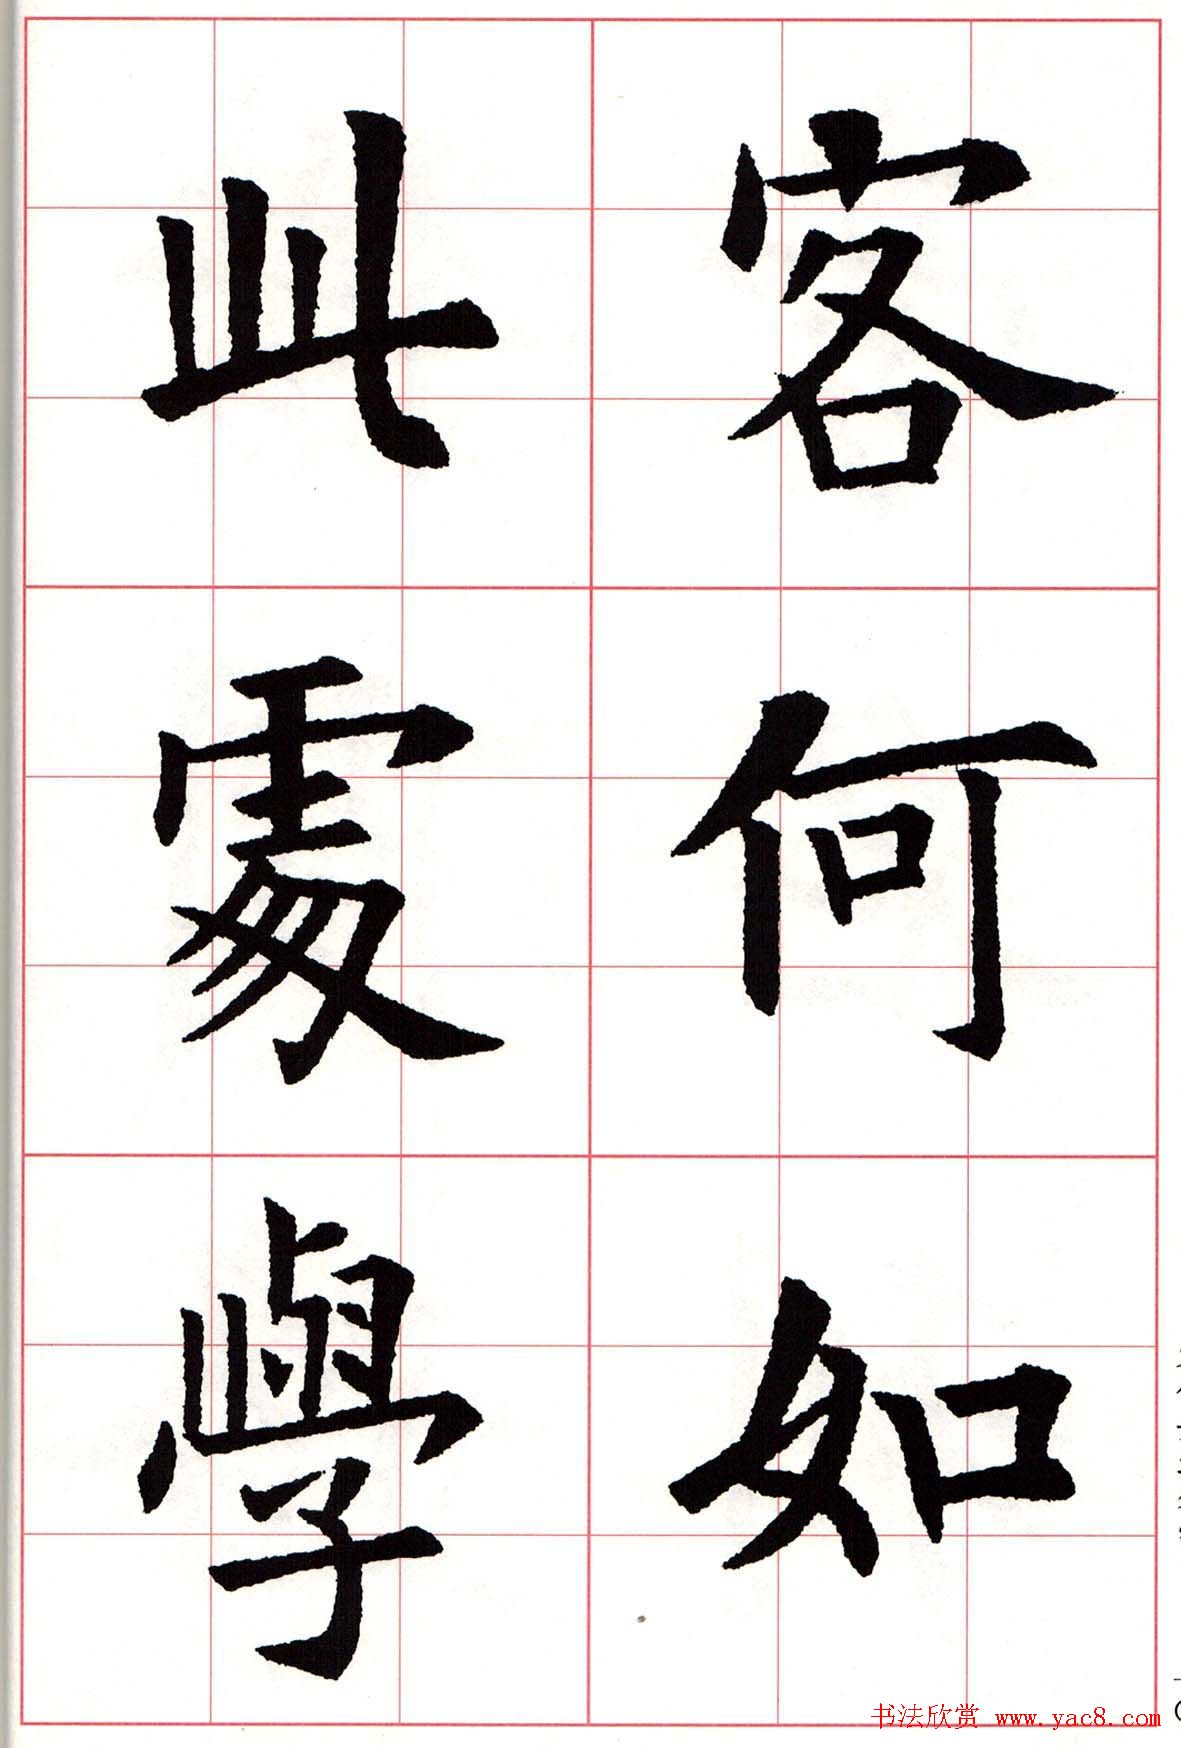 客何如
此處學
书法欣赏 www.yac8.com